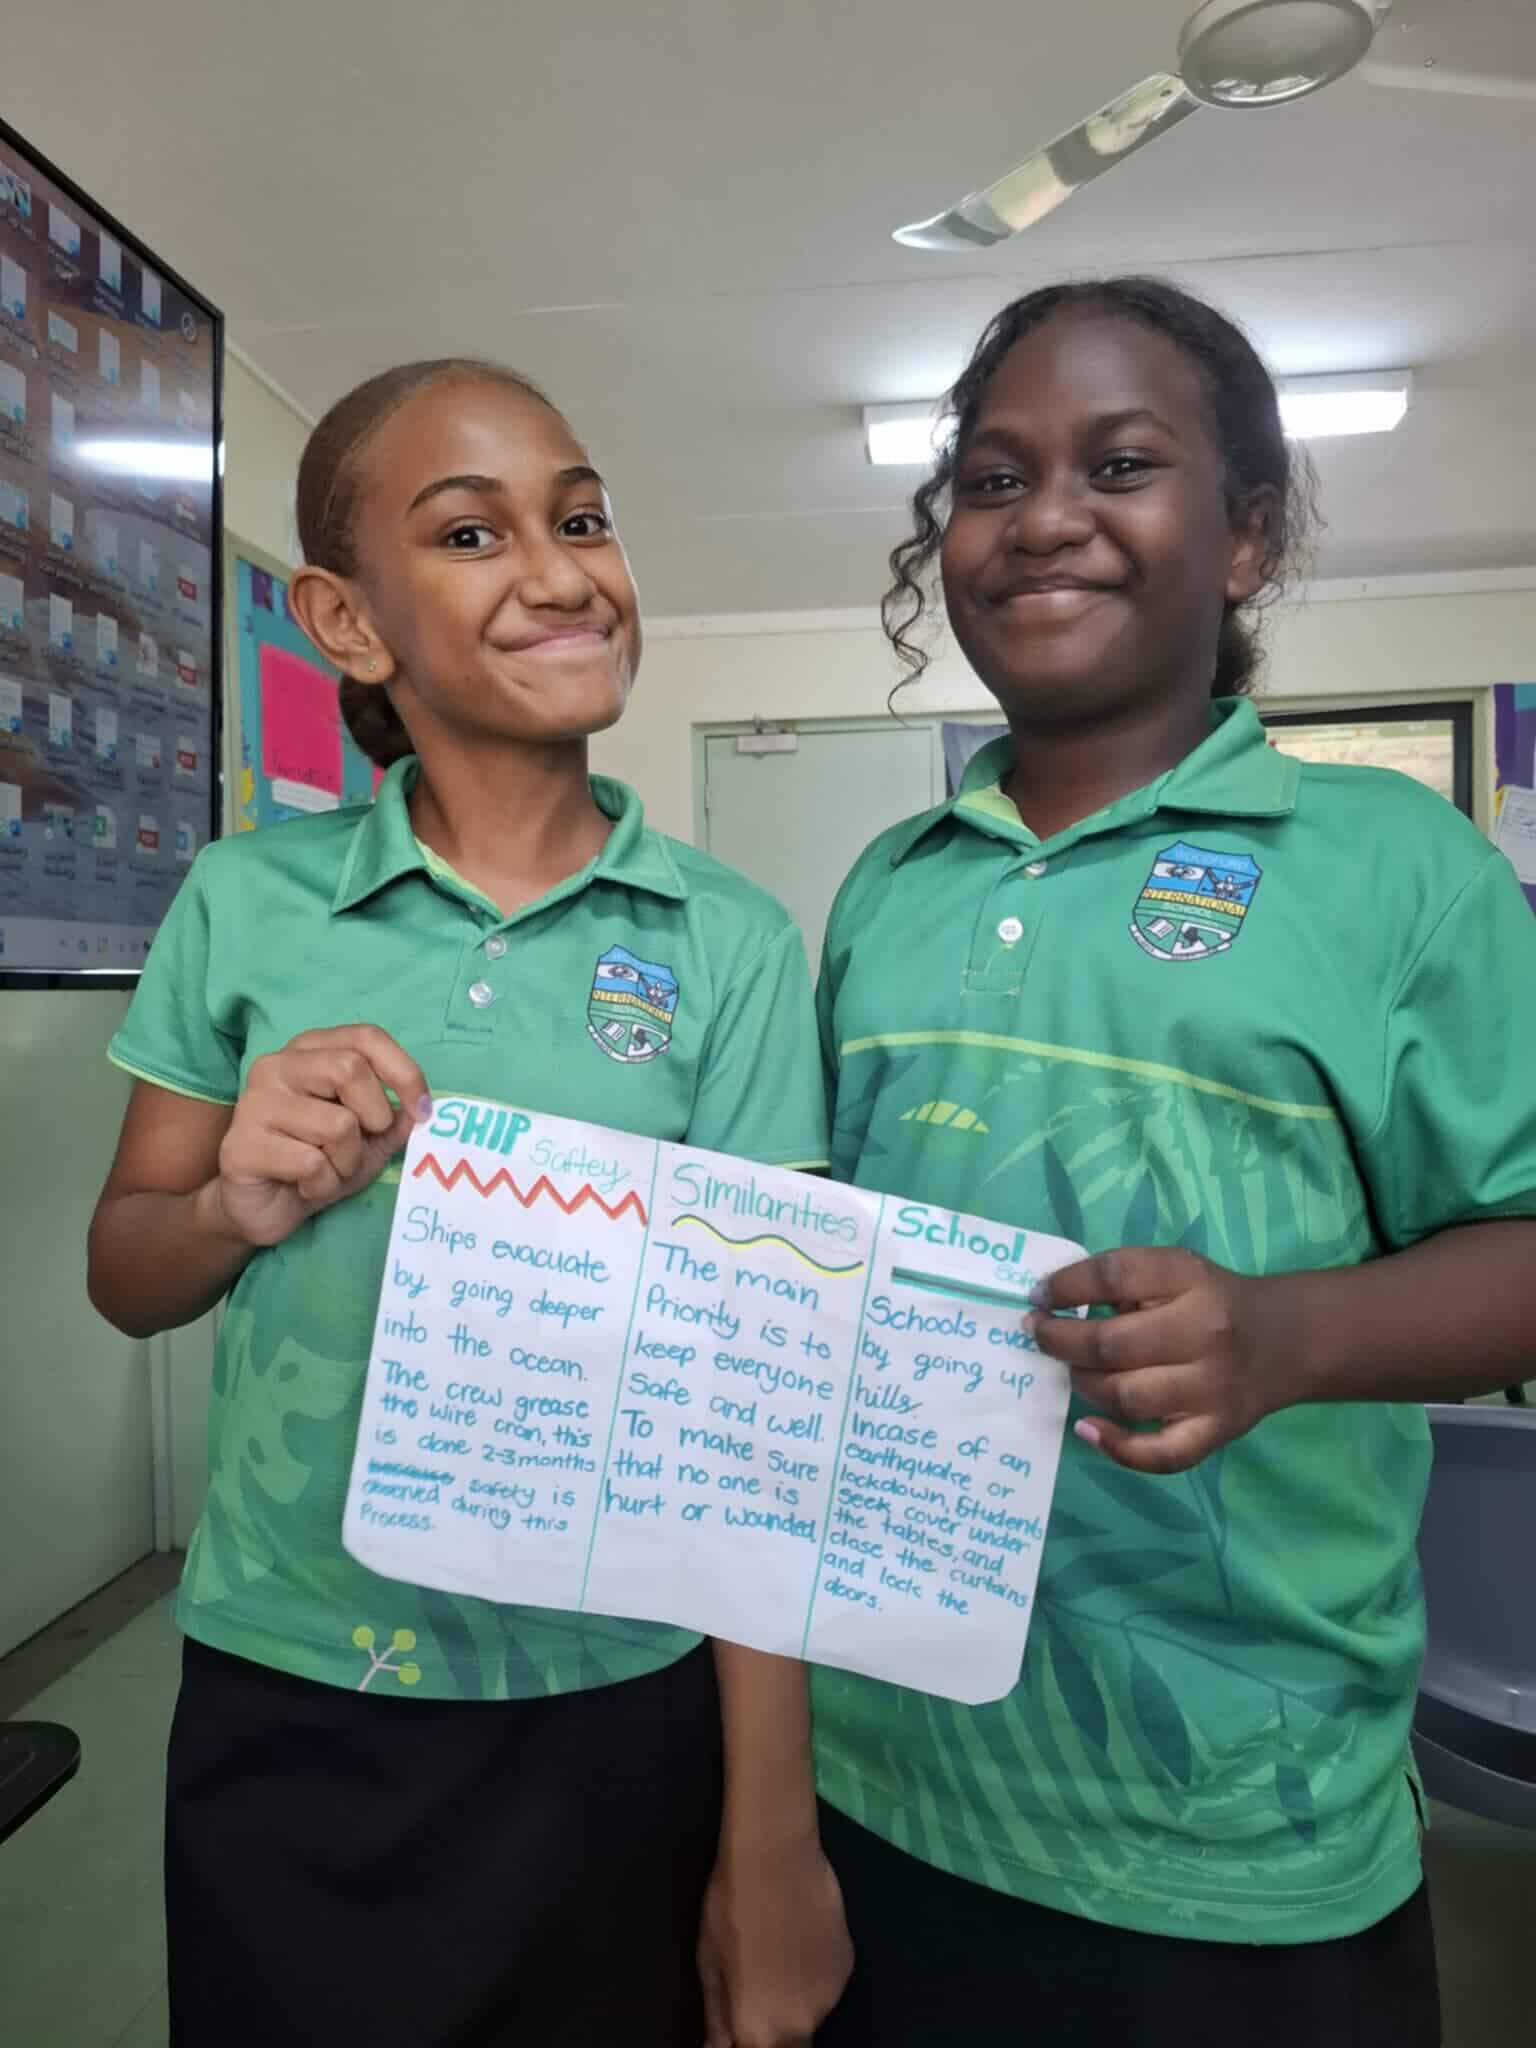 WOODFORD
INTERNATIONAL
SCHOOL
INTERNATIONAL
SCHOOL
SHIP Saftey
Ships evacuate
by going deeper
into the ocean.
The crew grease
the wire cran, this
is done 2-3 months
safety is
observed during this
Process.
Similarities
The main
Priority is to
keep everyone
Safe and well.
To make sure
that no one is
hurt or wounded
School
Schools
by going up
hills.
Incase of an
earthquake or
lockdown, Students
seek cover under
the tables, and
close the curtains
and lock the
doors.